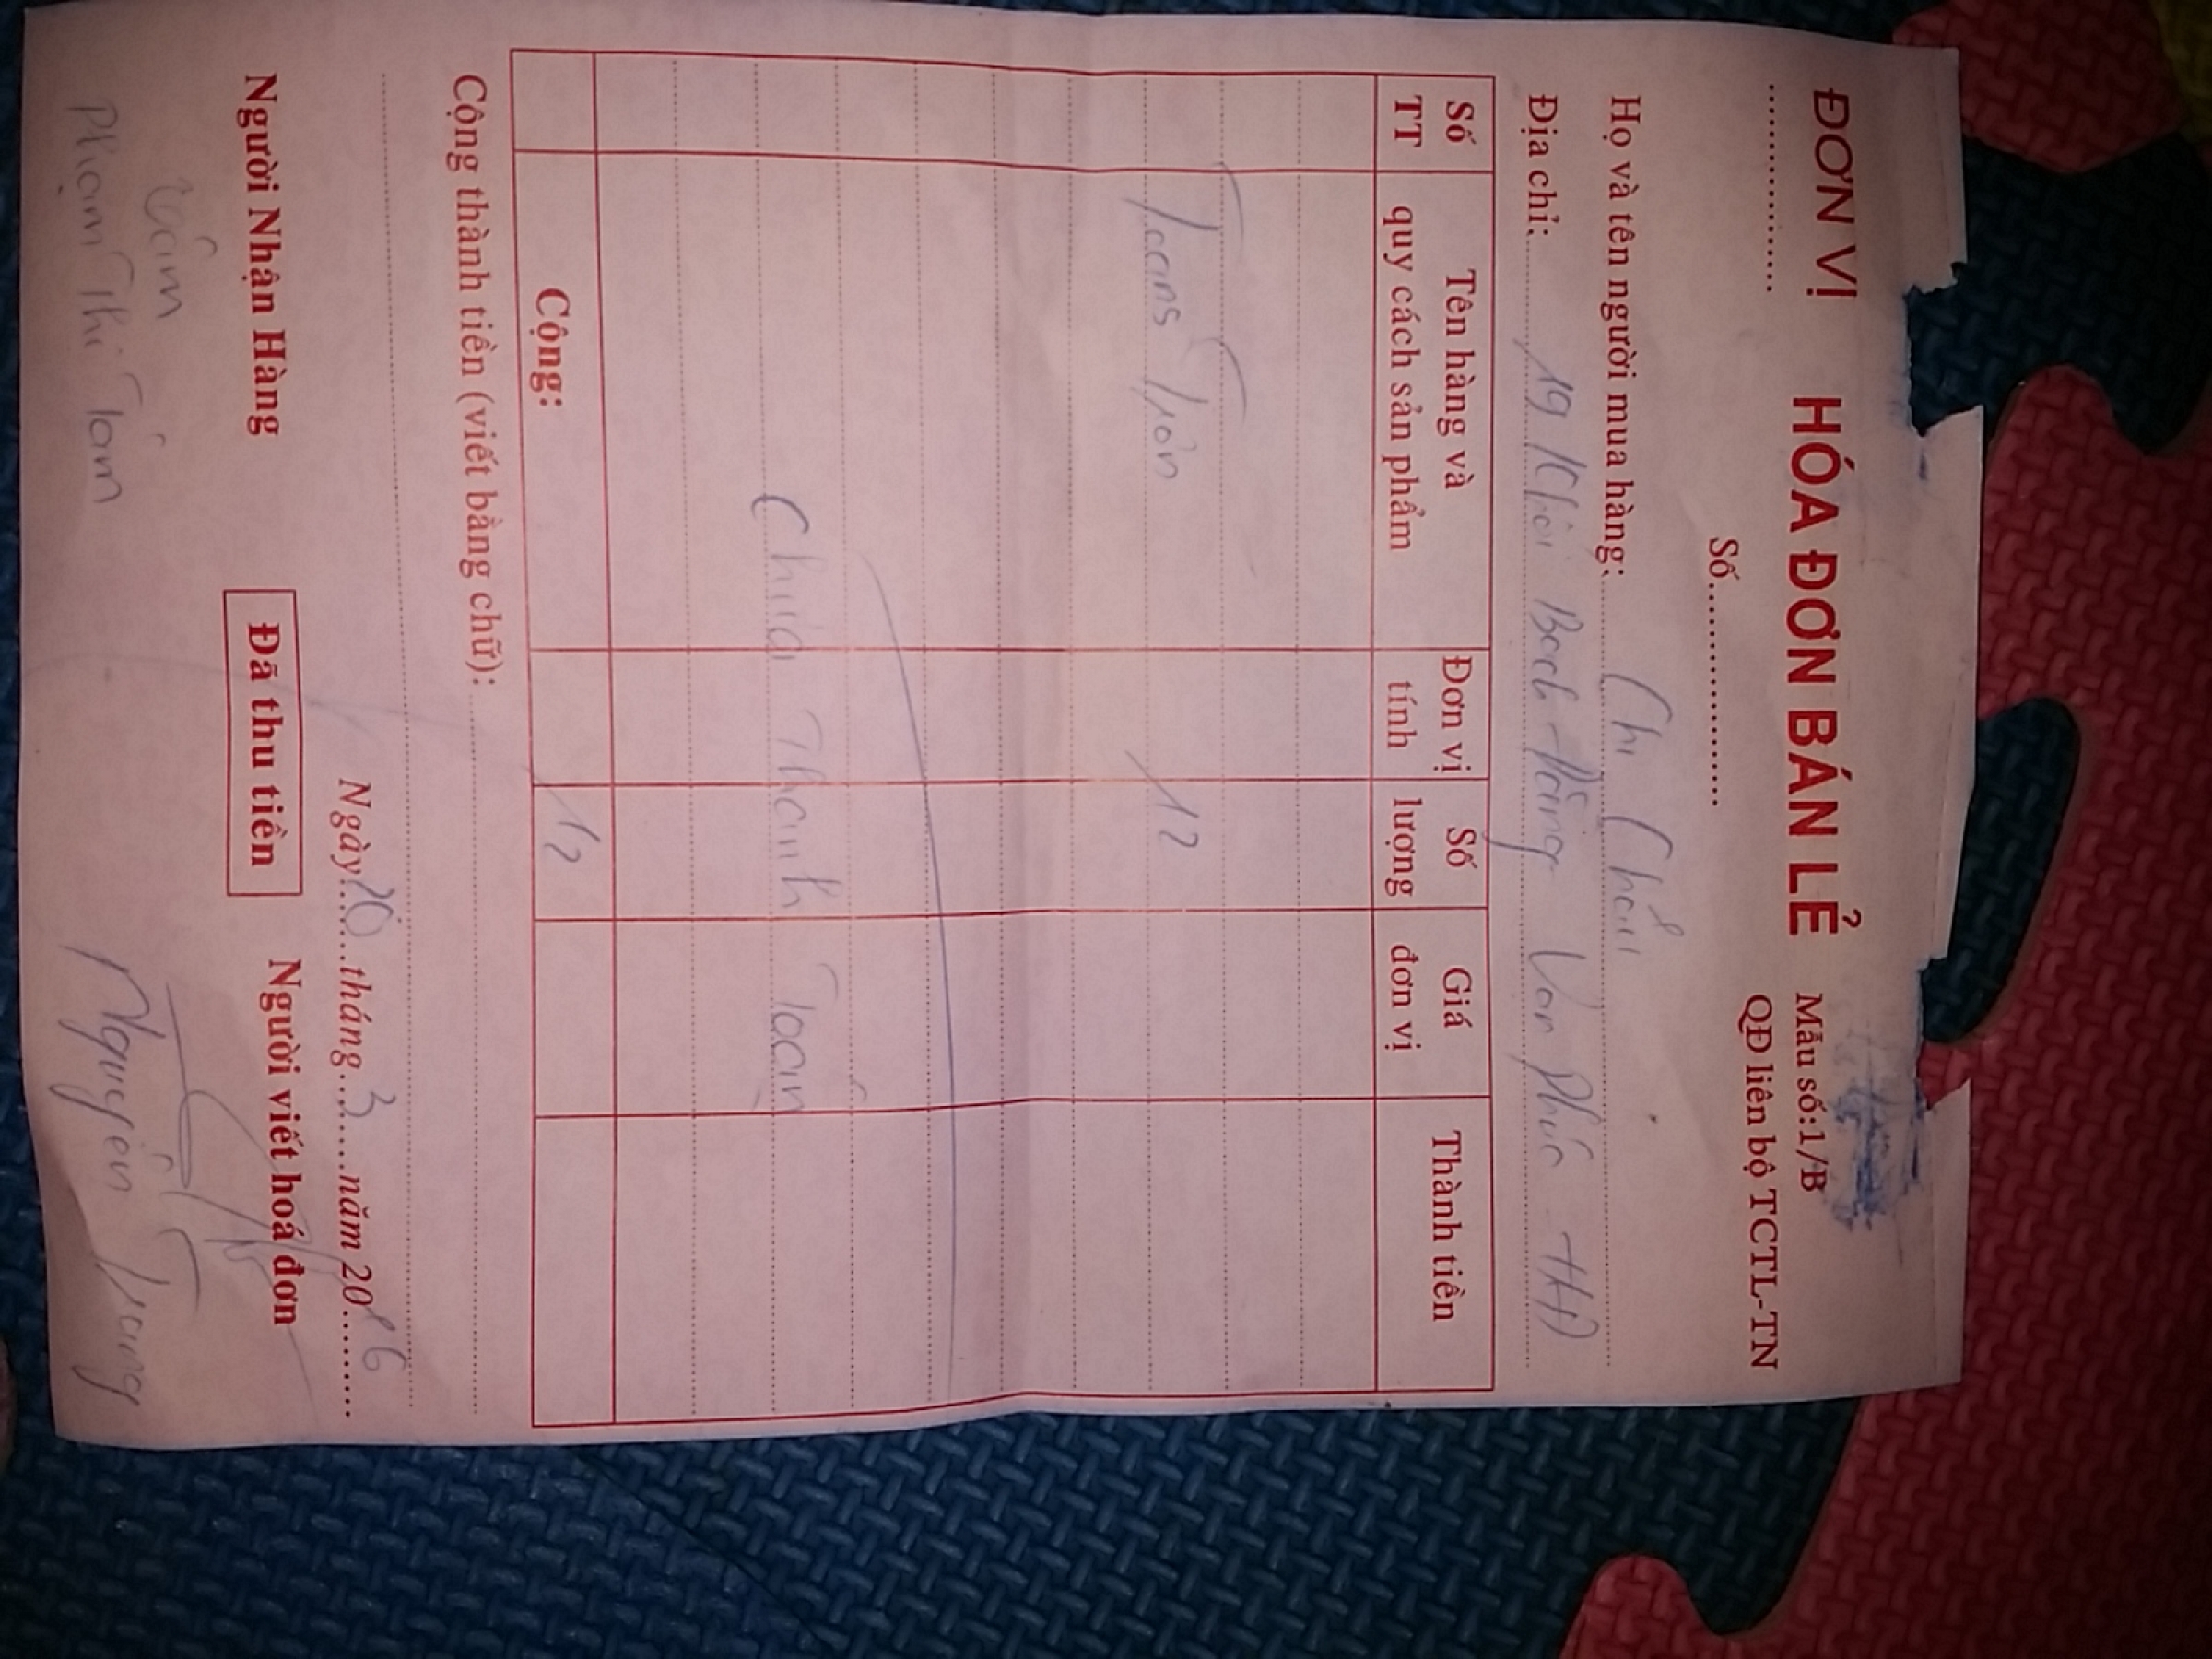 ĐƠN VỊ HÓA ĐƠN BÁN LẺ Mẫu số:1/B
QĐ liên bộ TCTL-TN
Số
Họ và tên người mua hàng: Chị Châu
Địa chỉ: 19 Khối Bạch Đằng Vạn Phúc HĐ
Số TT Tên hàng và quy cách sản phẩm Đơn vị tính Số lượng Giá đơn vị Thành tiền
Trơn 12
Chưa Thanh Toán
Cộng: 12
Cộng thành tiền (viết bằng chữ):
Ngày 20 tháng 3 năm 2016
Người Nhận Hàng Đã thu tiền Người viết hoá đơn
Phạm Thị Tâm Nguyễn Trang